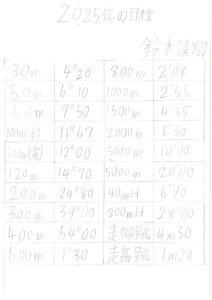 2025年の目標
鈴木湊翔
30m 4"20 800m 2'08
50m 6"10 1000m 2'55
60m 7"50 1500m 4'35
100m(手) 11"67 2000m 6'30
100m(電) 12"00 3000m 10'00
120m 14"70 5000m 20'00
200m 24"80 40mH 6"40
300m 39"00 200mH 28"00
400m 54"00 走幅跳 4m50
600m 1'30 走高跳 1m20